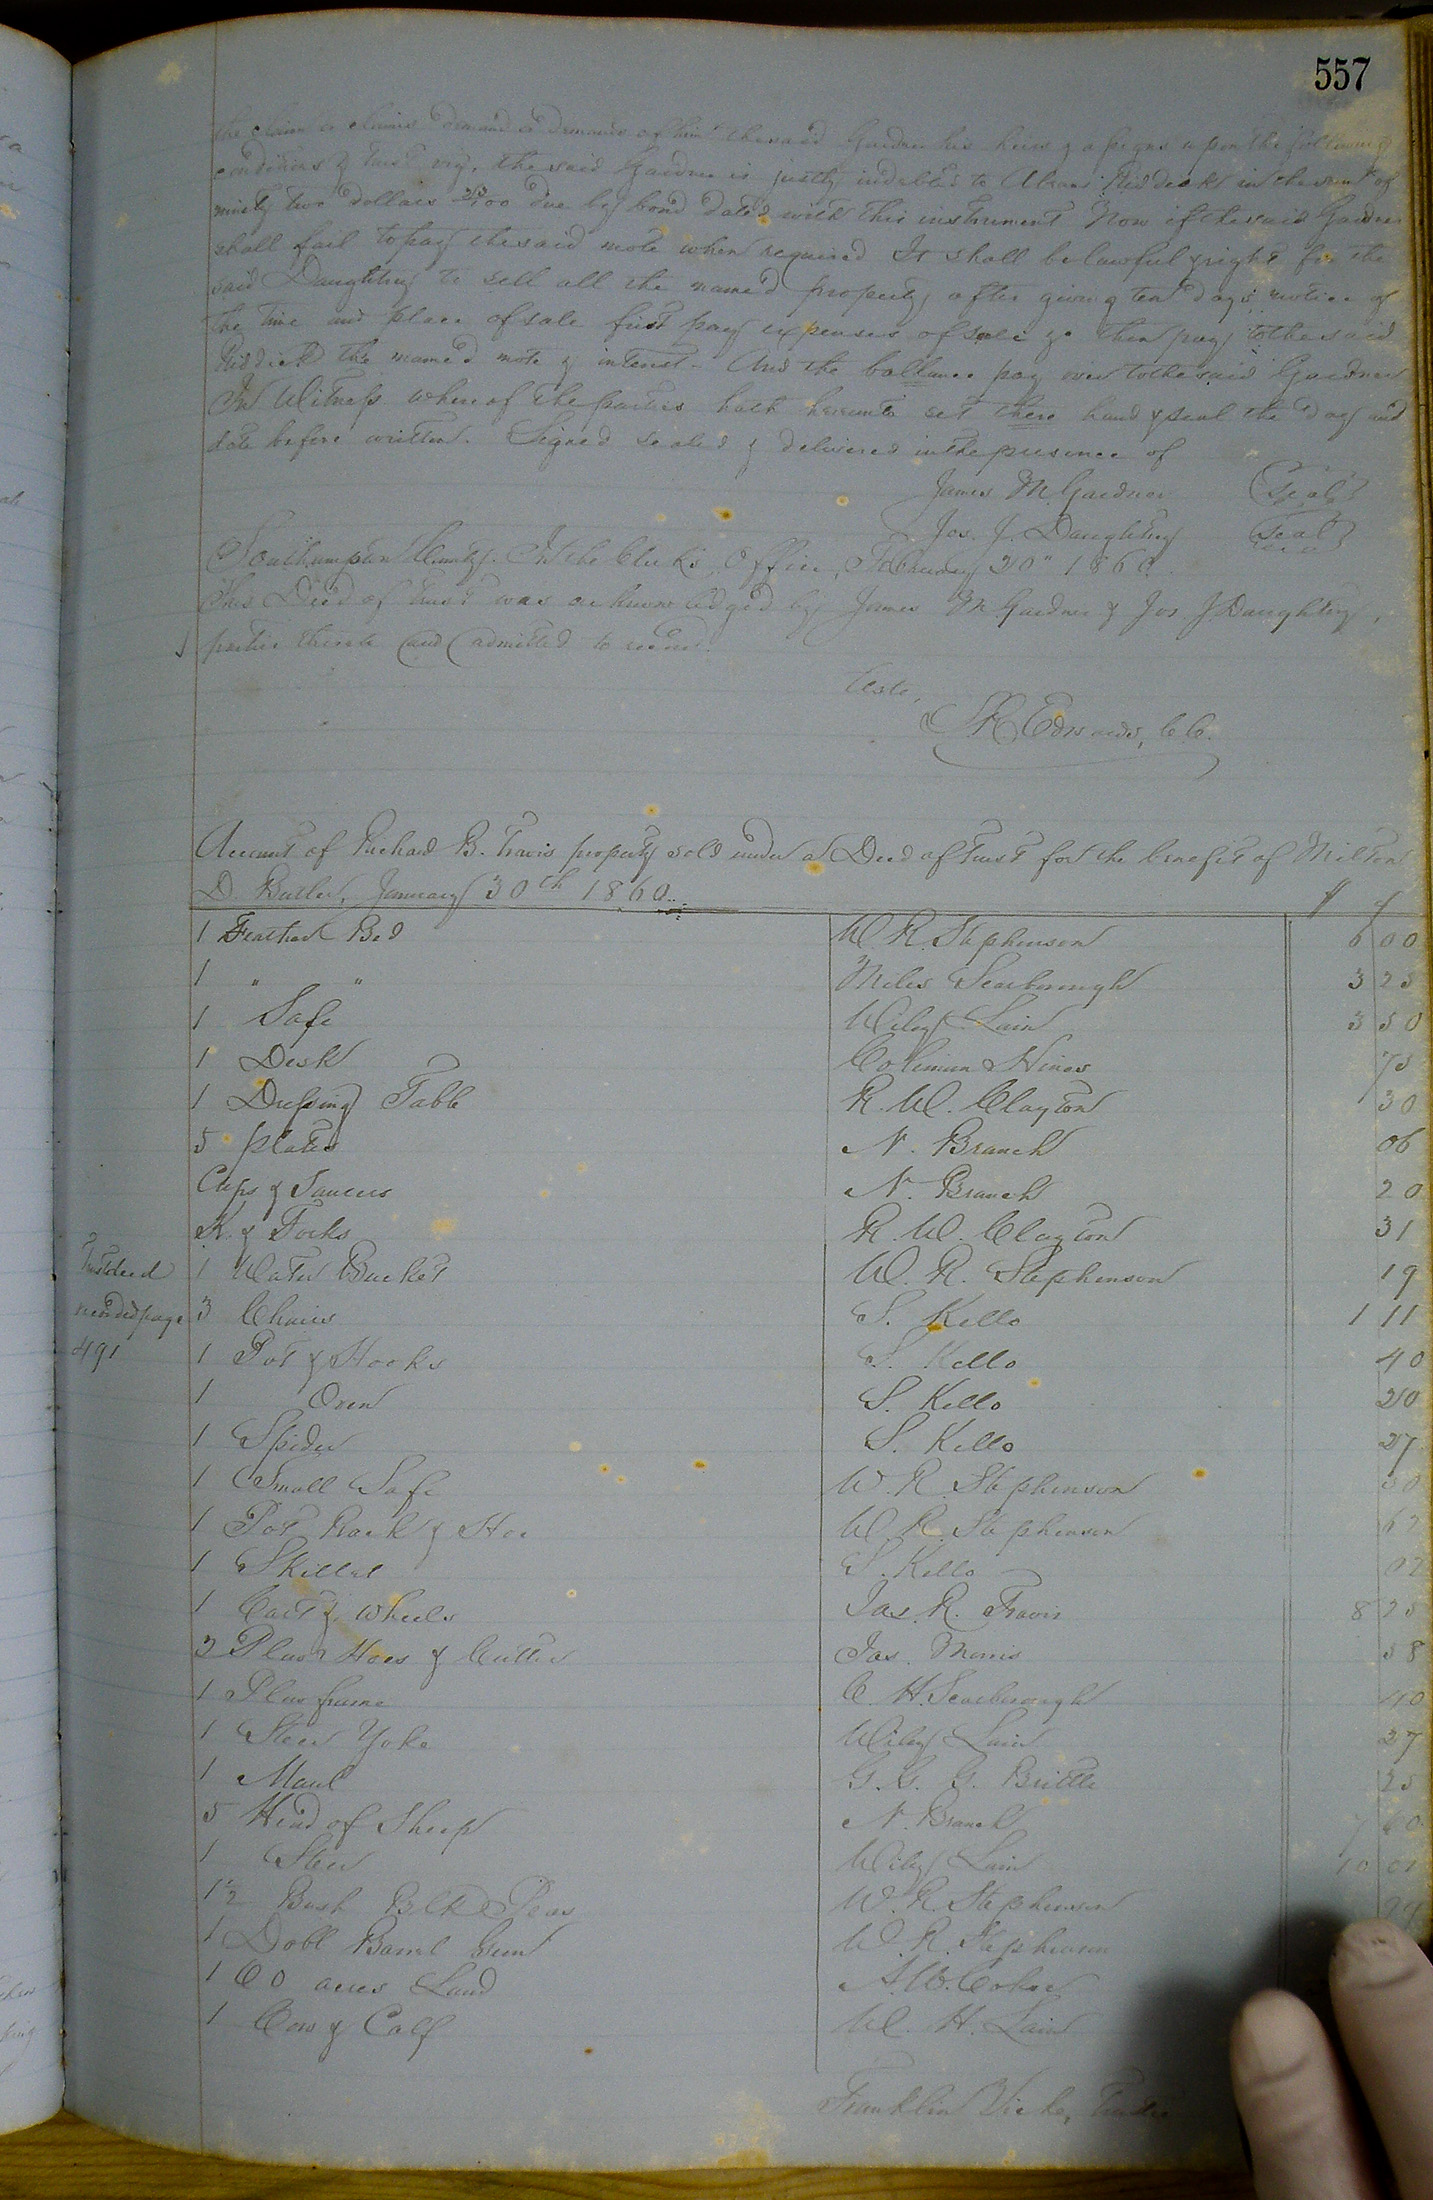 557
the claim or claims demand or demands of him the said Gardner his heirs & assigns upon the following
conditions & trust viz, the said Gardner is justly indebted to Abram Riddick in the sum of
ninety two dollars 23/100 due by bond dated with this instrument Now if the said Gardner
shall fail to pay the said note when required It shall be lawful & right for the
said Daughtrey to sell all the named property after giving ten days notice of
the time and place of sale first pay expenses of sale & then pay to the said
Riddick the named note & interest - And the ballance pay over to the said Gardner
In Witness whereof the parties hath hereunto set there hand & seal the day and
date before written. Signed sealed & delivered in the presence of
James M. Gardner (Seal)
Jos. J. Daughtrey (Seal)
Southampton County. In the Clerk's Office, February 20" 1860.
This Deed of trust was acknowledged by James M Gardner & Jos J Daughtrey,
parties thereto and admitted to record.
Teste,
Edwards, C.C.
Account of Richard B. Travis property sold under a Deed of Trust for the benefit of Milton
D. Butler, January 30th 1860.
$ ¢
1 Feather Bed W. R. Stephenson 6 00
1 " " Miles Scarborough 3 25
1 Safe Wiley Lain 3 50
1 Desk Coliman Hines 75
1 Dressing Table R. W. Clayton 30
5 plates N. Branch 06
Cups & Saucers N. Branch 20
K. & Forks R. W. Clayton 31
Trust deed 1 Water Bucket W. R. Stephenson 19
recorded page 3 Chairs S. Kello 1 11
491 1 Pot & Hooks S. Kello 40
1 Oven S. Kello 20
1 Spider S. Kello 27
1 Small Safe W. R. Stephenson 50
1 Pot Rack & Hoe W. R. Stephenson
1 Skillet S. Kello
1 Cart & wheels Jas. R. Travis 8 25
3 Plow Hoes & Cutter Jas. Morris 58
1 Plow frame C. H. Scarborough 40
1 Steer Yoke Wiley Lain 27
1 Maul G. G. G. Brittle 25
5 Head of Sheep N. Branch 7 60
1 Steer Wiley Lain 10 01
1 1/2 Bush Blk Peas W. R. Stephenson
1 Dobl Barrel Gun W. R. Stephenson
160 acres Land
1 Cow & Calf W. H. Lain
Franklin Vick, Trustee